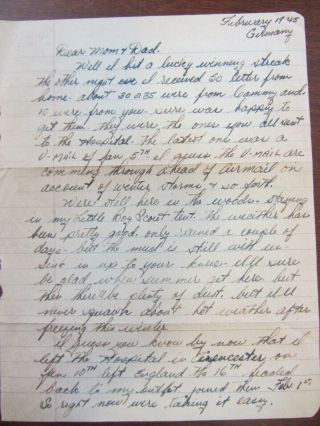 February 19 '45
Germany
Dear Mom & Dad.
Well I hit a lucky winning streak
the other night eve I received 50 letter from
home. about 30 or 35 were from Cammy and
10 were from you. sure was happy to
get them. they were the ones you all sent
to the Hospital. the latest one was a
V-mail of Jan, 5TH I guess the V-MAIL are
coming through ahead of Airmail on
account of winter storms & so forth.
Were still here in the woods. staying
in my Little Boy Scout tent. the weather has
been pretty good. only rained a couple of
days. but the mud is still with us.
Sink in up to your knees. I'll sure
be glad when summer get here. but
then there'll be plenty of dust. but I'll
never squawk about hot weather after
freezing this winter.
I guess you know by now that I
left the Hospital in Cirencester, on
Jan 10TH left England the 16TH
back to my outfit. joined them Feb 1st
So right now were taking it easy.